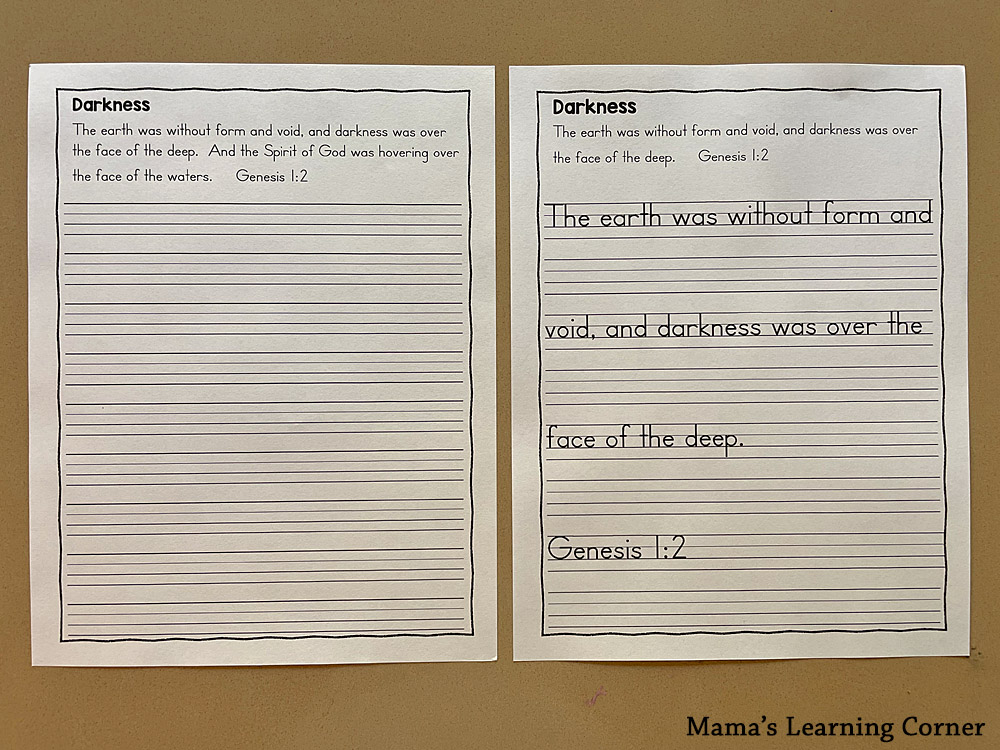 Darkness
The earth was without form and void, and darkness was over
the face of the deep.  And the Spirit of God was hovering over
the face of the waters.     Genesis 1:2
Darkness
The earth was without form and void, and darkness was over
the face of the deep.     Genesis 1:2
The earth was without form and
void, and darkness was over the
face of the deep.
Genesis 1:2
Mama's Learning Corner